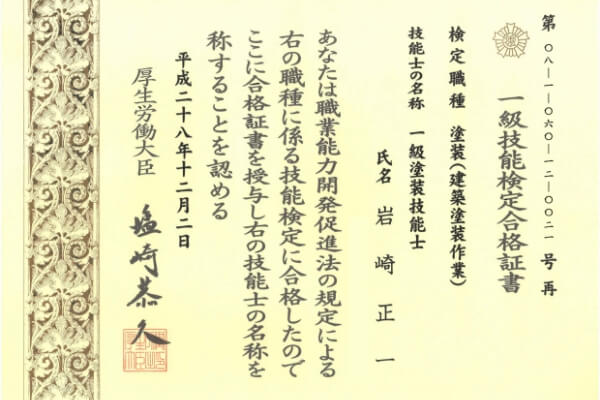 第〇八ー一ー〇六〇ー一二ー〇〇二一号再
一級技能検定合格証書
検定職種 塗装(建築塗装作業)
技能士の名称 一級塗装技能士
氏名 岩崎正一
あなたは職業能力開発促進法の規定による
右の職種に係る技能検定に合格したので
ここに合格証書を授与し右の技能士の名称を
称することを認める
平成二十八年十二月二日
厚生労働大臣 塩崎恭久